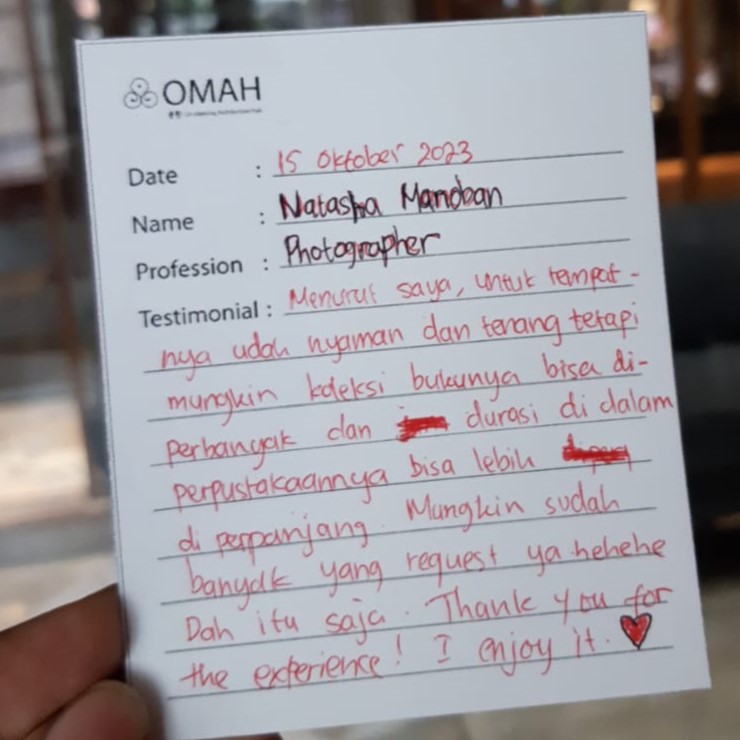 OMAH
Date : 15 Oktober 2023
Name : Natasha Manoban
Profession : Photographer
Testimonial : Menurut saya, untuk tempat-
nya udah nyaman dan terang tetapi
mungkin koleksi bukunya bisa di-
perbanyak dan durasi di dalam
perpustakaannya bisa lebih
di perpanjang. Mungkin sudah
banyak yang request ya hehehe
Dah itu saja. Thank you for
the experience! I enjoy it. ♥